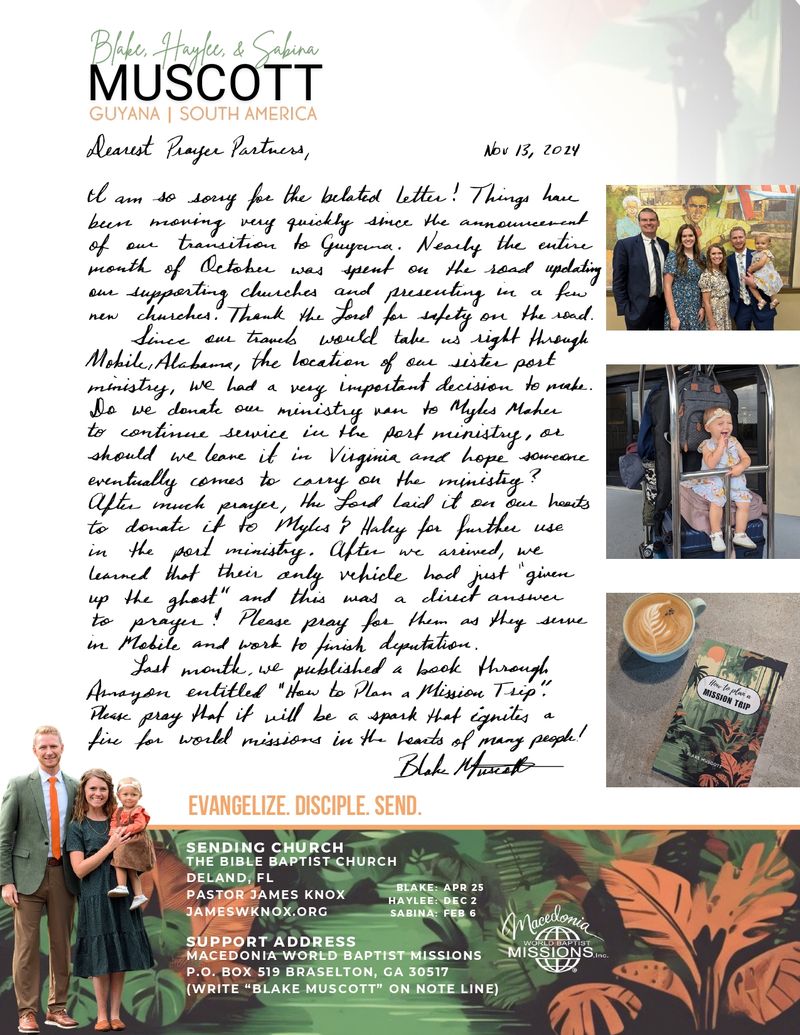 Blake, Haylee, & Sabina
MUSCOTT
GUYANA | SOUTH AMERICA
Dearest Prayer Partners,
Nov 13, 2024
I am so sorry for the belated letter! Things have
been moving very quickly since the announcement
of our transition to Guyana. Nearly the entire
month of October was spent on the road updating
our supporting churches and presenting in a few
new churches. Thank the Lord for safety on the road.
Since our travels would take us right through
Mobile, Alabama, the location of our sister port
ministry, we had a very important decision to make.
Do we donate our ministry van to Myles Maher
to continue service in the port ministry, or
should we leave it in Virginia and hope someone
eventually comes to carry on the ministry?
After much prayer, the Lord laid it on our hearts
to donate it to Myles & Haley for further use
in the port ministry. After we arrived, we
learned that their only vehicle had just "given
up the ghost" and this was a direct answer
to prayer! Please pray for them as they serve
in Mobile and work to finish deputation.
Last month, we published a book through
Amazon entitled "How to Plan a Mission Trip".
Please pray that it will be a spark that ignites a
fire for world missions in the hearts of many people!
Blake Muscott
How to plan a
MISSION TRIP
BLAKE MUSCOTT
EVANGELIZE. DISCIPLE. SEND.
SENDING CHURCH
THE BIBLE BAPTIST CHURCH
DELAND, FL
PASTOR JAMES KNOX
JAMESWKNOX.ORG
BLAKE: APR 25
HAYLEE: DEC 2
SABINA: FEB 6
SUPPORT ADDRESS
MACEDONIA WORLD BAPTIST MISSIONS
P.O. BOX 519 BRASELTON, GA 30517
(WRITE "BLAKE MUSCOTT" ON NOTE LINE)
Macedonia
WORLD BAPTIST
MISSIONS, Inc.